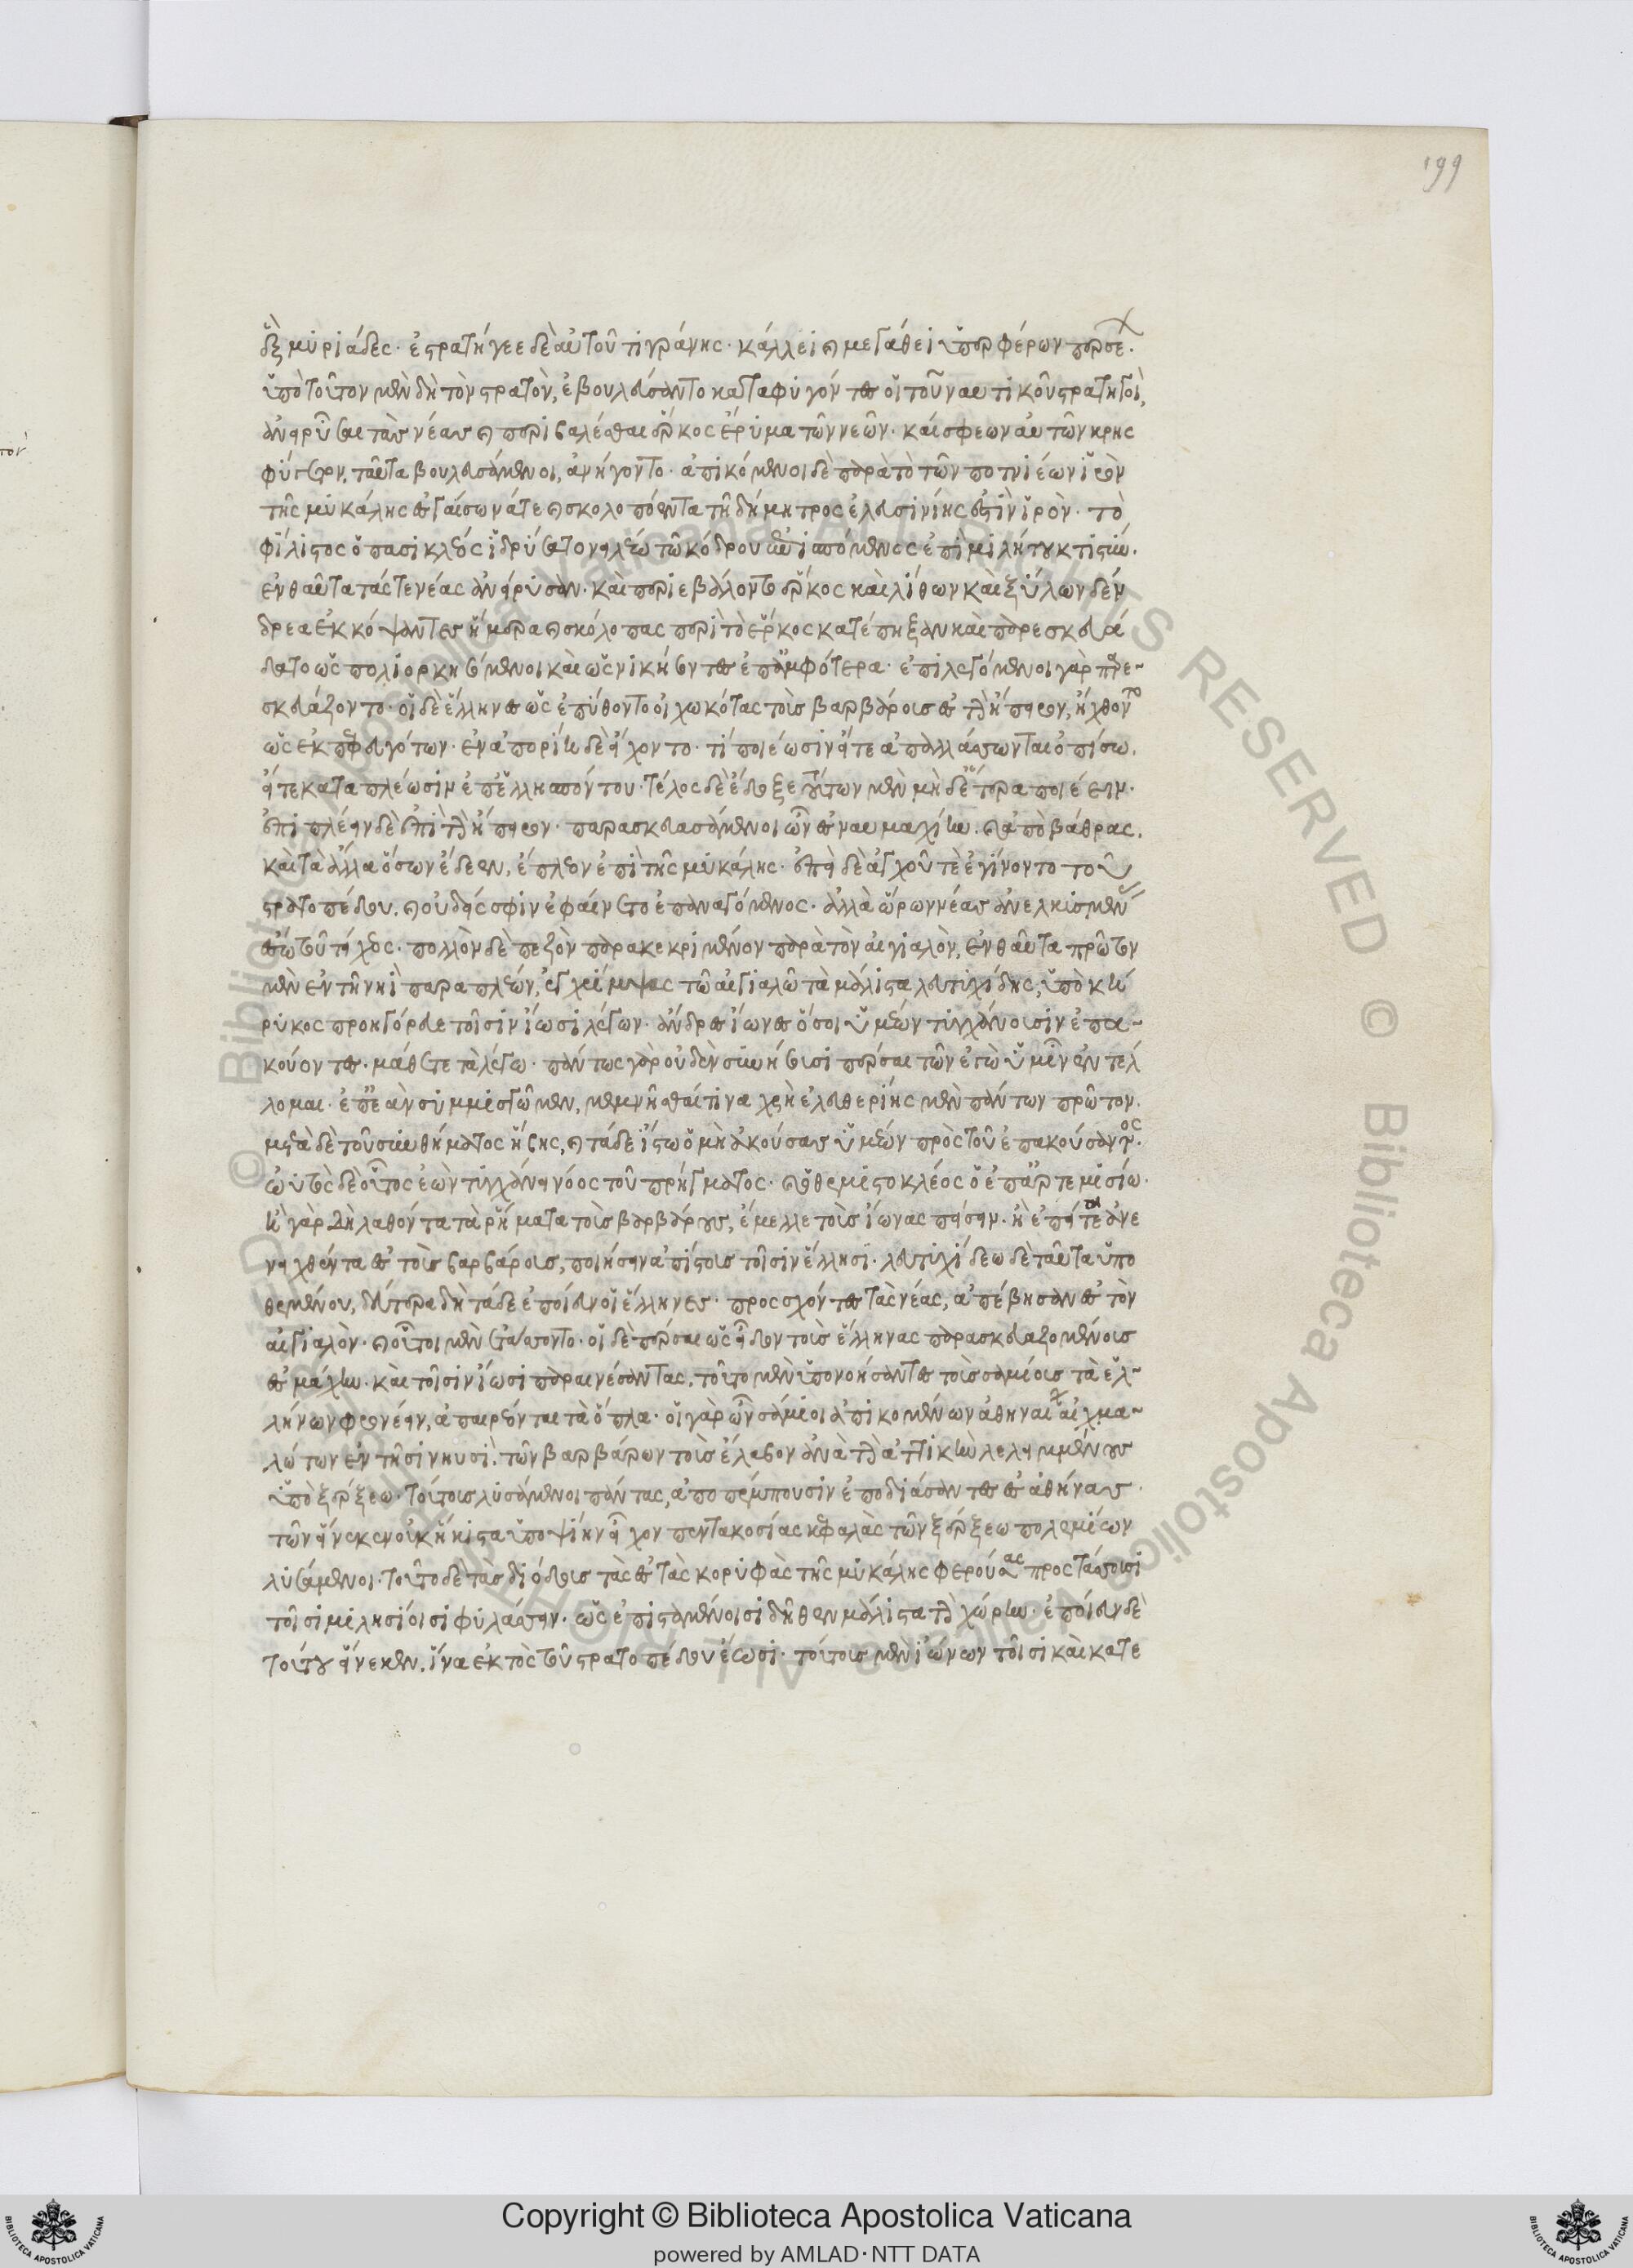 199
ἓξ μυριάδες· ἐστρατήγεε δὲ αὐτοῦ τιγράνης· κάλλεϊ καὶ μεγάθεϊ ὑπερφέρων περσέ·
ὑπὸ τοῦτον μὲν δὴ τὸν στρατὸν, ἐβουλεύσαντο καταφυγόντες οἱ τοῦ ναυτικοῦ στρατηγοὶ,
ἀνειρύσαι τὰς νέας καὶ περιβαλέσθαι ἕρκος ἔρυμα τῶν νεῶν· καί σφεων αὐτῶν κρης
φύγετον. ταῦτα βουλευσάμενοι, ἀνήγοντο· ἀπικόμενοι δὲ παρὰ τὸ τῶν ποτνιέων ἱερὸν
τῆς μυκάλης ἐς γαίσωνά τε καὶ σκολοπόεντα τῆ δήμητρος ἐλευσινίης ἐστὶν ἱρὸν· τὸ
φίλιστος ὁ πασικλέος ἱδρύσατο νειλέω τῶ κόδρου ἐπισπόμενος ἐπὶ μιλήτου κτιστύν.
ἐνθαῦτα τάς τε νέας ἀνείρυσαν· καὶ περιεβάλοντο ἕρκος καὶ λίθων καὶ ξύλων δέν
δρεα ἐκκόψαντες ἥμερα καὶ σκόλοπας περὶ τὸ ἕρκος κατέπηξαν καὶ παρεσκευά
δατο ὡς πολιορκησόμενοι καὶ ὡς νικήσοντες ἐπ' ἀμφότερα· ἐπιλεγόμενοι γὰρ παρε-
σκευάζοντο· οἱ δὲ ἕλληνες ὡς ἐπύθοντο οἰχωκότας τοὺς βαρβάρους ἐς τὴν ἤπειρον, ἤχθοντο
ὡς ἐκπεφευγότων· ἐν ἀπορίη δὲ εἴχοντο· τί ποιέωσιν εἴτε ἀπαλλάσσωνται ὀπίσω.
εἴτε καταπλέωσιν ἐπ' ἑλλησπόντου· τέλος δὲ ἔδοξε τούτων μὲν μηδέτερα ποιέειν·
ἐπιπλέειν δὲ ἐπὶ τὴν ἤπειρον· παρασκευασάμενοι ὦν ἐς ναυμαχίην. καὶ ἀποβάθρας.
καὶ τὰ ἄλλα ὅσων ἔδεεν, ἔπλεον ἐπὶ τῆς μυκάλης· ἐπεὶ δὲ ἀγχοῦ τὲ ἐγίνοντο τοῦ
στρατοπέδου. καὶ οὐδείς σφιν ἐφαίνετο ἐπαναγόμενος· ἀλλὰ ὥρων νέας ἀνελκυσμένας
ἔσω τοῦ τείχεος· πολλὸν δὲ πεζὸν παρακεκριμένον παρὰ τὸν αἰγιαλὸν, ἐνθαῦτα πρῶτον
μὲν ἐν τῆ νηῒ παραπλέων, ἐγχρίμψας τῶ αἰγιαλῶ τὰ μάλιστα λευτυχίδης, ὑπὸ κή
ρυκος προηγόρευε τοῖσιν ἴωσι λέγων· ἄνδρες ἴωνες ὅσοι ὑμέων τυγχάνουσιν ἐπα-
κούοντες· μάθετε τὰ λέγω· πάντως γὰρ οὐδὲν συνήσουσι πέρσαι τῶν ἐγὼ ὑμῖν ἐντέλ
λομαι· ἐπεὰν συμμίσγωμεν, μεμνῆσθαί τινα χρὴ ἐλευθερίης μὲν πάντων πρῶτον.
μετὰ δὲ τοῦ συνθήματος ἥβης, καὶ τάδε ἴστω ὁ μὴ ἀκούσας ὑμέων πρὸς τοῦ ἐπακούσαντος.
ὡυτὸς δὲ οὗτος ἐὼν τυγχάνει νόος τοῦ πρήγματος· καὶ ὁ θεμιστοκλέος ὁ ἐπ' ἀρτεμισίω·
ἢ γὰρ δὴ λαθόντα τὰ ῥήματα τοὺς βαρβάρους, ἔμελλε τοὺς ἴωνας πείσειν· ἢ ἔπειτα ἀνε
νειχθέντα ἐς τοὺς βαρβάρους, ποιήσειν ἀπίστους τοῖσιν ἕλλησι· λευτυχίδεω δὲ ταῦτα ὑπο
θεμένου, δεύτερα δὴ τάδε ἐποίευν οἱ ἕλληνες· προσσχόντες τὰς νέας, ἀπέβησαν ἐς τὸν
αἰγιαλὸν· καὶ οὗτοι μὲν ἐτάσσοντο· οἱ δὲ πέρσαι ὡς εἶδον τοὺς ἕλληνας παρασκευαζομένους
ἐς μάχην· καὶ τοῖσιν ἴωσι παραινέσαντας, τοῦτο μὲν ὑπονοήσαντες τοὺς σαμίους τὰ ἑλ-
λήνων φρονέειν, ἀπαιρέονται τὰ ὅπλα· οἱ γὰρ ὦν σάμιοι ἀπικομένων ἀθηναίων αἰχμα-
λώτων ἐν τῆσι νηυσὶ. τῶν βαρβάρων τοὺς ἔλαβον ἀνὰ τὴν ἀττικὴν λελειμμένους
ὑπὸ ξέρξεω· τούτους λυσάμενοι πάντας, ἀποπέμπουσιν ἐποδιάσαντες ἐς ἀθήνας·
τῶν εἵνεκεν οὐκ ἥκιστα ὑποψίην εἶχον πεντακοσίας κεφαλὰς τῶν ξέρξεω πολεμίων
λυσάμενοι· τοῦτο δὲ τὰς διόδους τὰς ἐς τὰς κορυφὰς τῆς μυκάλης φερούσας προστάσσουσι
τοῖσι μιλησίοισι φυλάσσειν· ὡς ἐπισταμένοισι δῆθεν μάλιστα τὴν χώρην· ἐποίευν δὲ
τούτου εἵνεκεν. ἵνα ἐκτὸς τοῦ στρατοπέδου ἔωσι· τούτους μὲν ἰώνων τοῖσι καὶ κατε
Copyright © Biblioteca Apostolica Vaticana
powered by AMLAD·NTT DATA